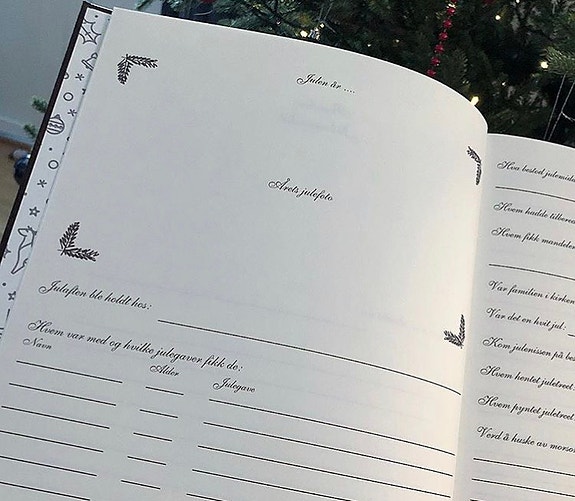 Julen år ....
Årets julefoto
Julaften ble holdt hos:
Hvem var med og hvilke julegaver fikk de:
Navn Alder Julegave
Hva bestod julemidd
Hvem hadde tilbered
Hvem fikk mandelen
Var familien i kirken
Var det en hvit jul:
Kom julenissen på be
Hvem hentet juletreet
Hvem pyntet juletreet
Verd å huske av morso